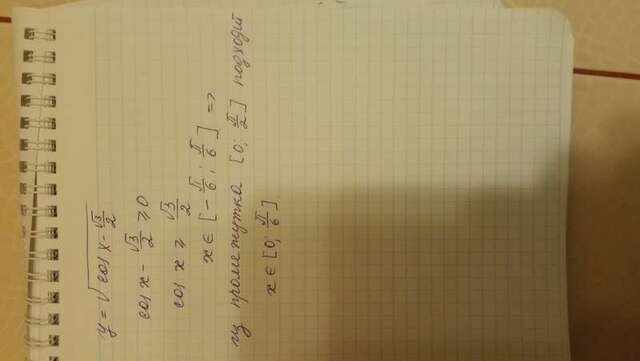 y = √(cos x - √3/2)
cos x - √3/2 ≥ 0
cos x ≥ √3/2
x ∈ [-π/6; π/6] =>
из промежутка [0; π/2] подходит
x ∈ [0; π/6]